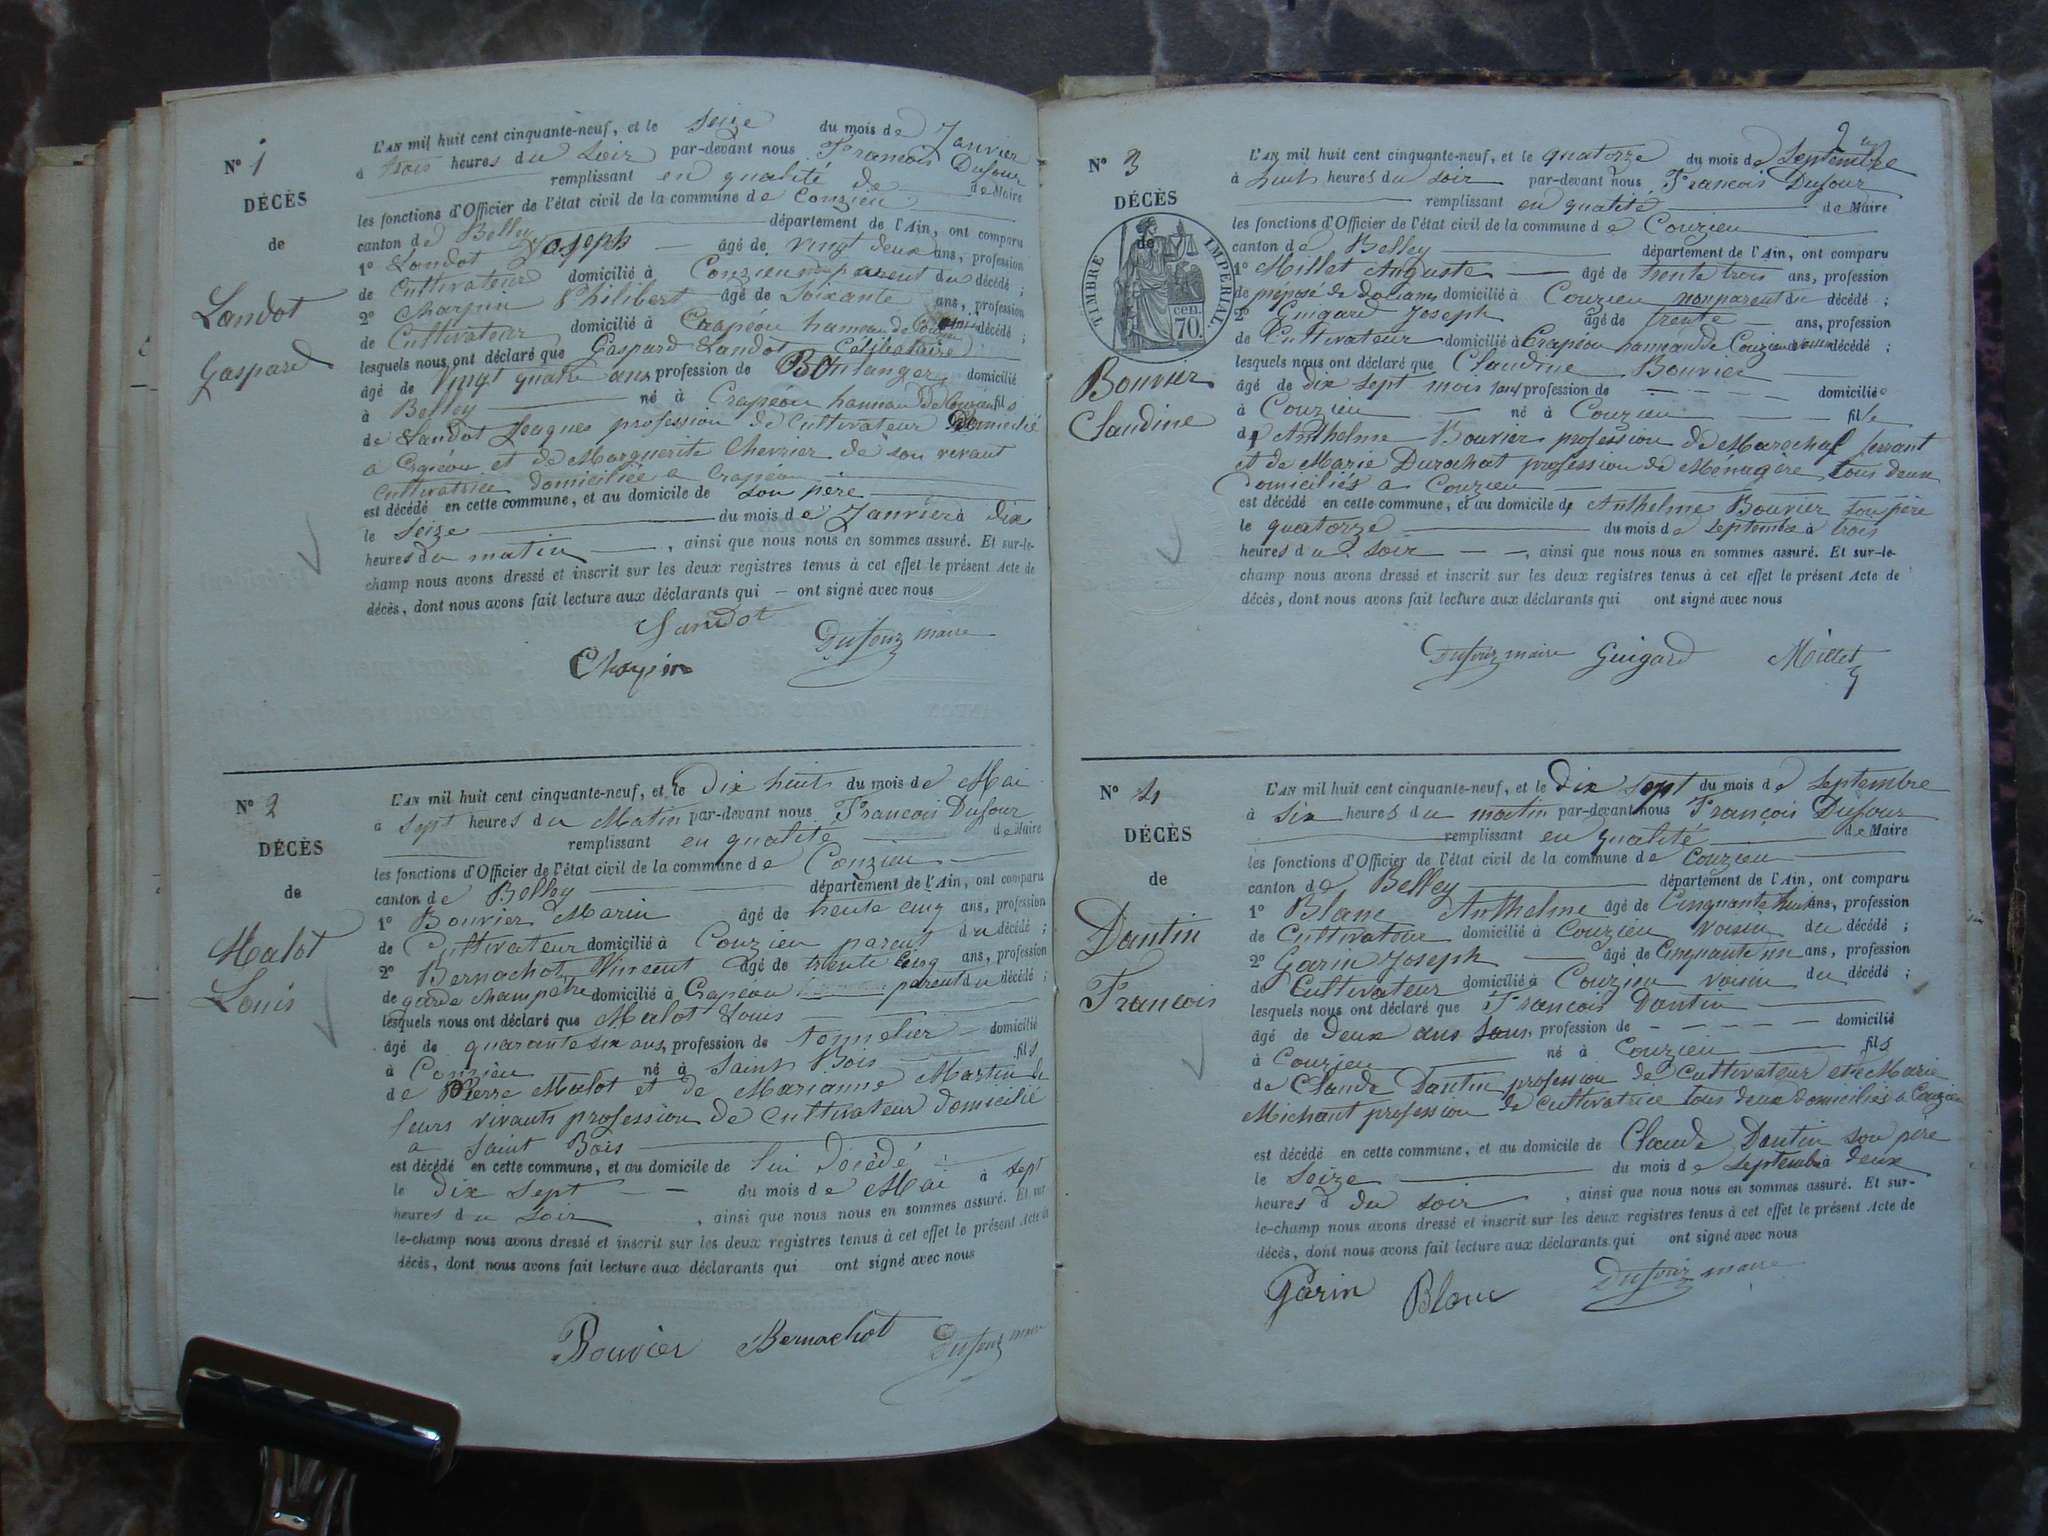 N° 1
DÉCÈS
de
Landot
Gaspard
L'AN mil huit cent cinquante-neuf, et le seize du mois de Janvier
à trois heures du soir par-devant nous François Dufour
remplissant en qualité de de Maire
les fonctions d'Officier de l'état civil de la commune de Conzieu
canton de Belley département de l'Ain, ont comparu
1° Landot Joseph âgé de vingt deux ans, profession
de Cultivateur domicilié à Conzieu parent du décédé ;
2° Charpin Philibert âgé de Soixante ans, profession
de Cultivateur domicilié à Crapéou hameau de décédé ;
lesquels nous ont déclaré que Gaspard Landot Célibataire
âgé de vingt quatre ans, profession de Boulanger domicilié
à Belley né à Crapéou hameau de Conzieu fils
de Landot Jacques profession de Cultivateur Domicilié
a Crapéou et de Marguerite Chevrier de son vivant
Cultivatrice domiciliée a Crapéou
est décédé en cette commune, et au domicile de son père
le Seize du mois de Janvier à dix
heures du matin, ainsi que nous nous en sommes assuré. Et sur-le-
champ nous avons dressé et inscrit sur les deux registres tenus à cet effet le présent Acte de
décès, dont nous avons fait lecture aux déclarants qui ont signé avec nous
Landot
Dufour maire
Charpin
N° 2
DÉCÈS
de
Malot
Louis
L'AN mil huit cent cinquante-neuf, et le Dix huit du mois de Mai
à sept heures du Matin par-devant nous François Dufour
remplissant en qualité de Maire
les fonctions d'Officier de l'état civil de la commune de Conzieu
canton de Belley département de l'Ain, ont comparu
1° Bouvier Marin âgé de trente cinq ans, profession
de Cultivateur domicilié à Conzieu parent du décédé ;
2° Bernachot Vincent âgé de trente cinq ans, profession
de garde champetre domicilié à Crapeou parent du décédé ;
lesquels nous ont déclaré que Malot Louis
âgé de quarante six ans, profession de tonnelier domicilié
à Conzieu né à Saint Bois fils
de Pierre Malot et de Marianne Martin de
leurs vivants profession de Cultivateur domicilié
a Saint Bois
est décédé en cette commune, et au domicile de lui Décédé
le Dix Sept du mois de Mai à sept
heures du soir, ainsi que nous nous en sommes assuré. Et sur-
le-champ nous avons dressé et inscrit sur les deux registres tenus à cet effet le présent Acte de
décès, dont nous avons fait lecture aux déclarants qui ont signé avec nous
Bouvier Bernachot Dufour maire
N° 3
DÉCÈS
de
TIMBRE IMPERIAL.
70 cen.
Bouvier
Claudine
L'AN mil huit cent cinquante-neuf, et le quatorze du mois de septembre
à huit heures du soir par-devant nous François Dufour
remplissant en qualité de Maire
les fonctions d'Officier de l'état civil de la commune de Conzieu
canton de Belley département de l'Ain, ont comparu
1° Millet Auguste âgé de trente trois ans, profession
de préposé de douanes domicilié à Conzieu non parent du décédé ;
2° Guigard Joseph âgé de trente ans, profession
de Cultivateur domicilié à Crapéou hameau de Conzieu voisin décédé ;
lesquels nous ont déclaré que Claudine Bouvier
âgé de dix sept mois ans, profession de domicilié
à Conzieu né à Conzieu fille
de Anthelme Bouvier profession de Marechal ferrant
et de Marie Durochat profession de Menagère tous deux
Domiciliés a Conzieu
est décédé en cette commune, et au domicile de Anthelme Bouvier son père
le quatorze du mois de septembre à trois
heures du soir, ainsi que nous nous en sommes assuré. Et sur-le-
champ nous avons dressé et inscrit sur les deux registres tenus à cet effet le présent Acte de
décès, dont nous avons fait lecture aux déclarants qui ont signé avec nous
Dufour maire Guigard Millet
N° 4
DÉCÈS
de
Dantin
François
L'AN mil huit cent cinquante-neuf, et le Dix sept du mois de Septembre
à six heures du matin par-devant nous François Dufour
remplissant en qualité de Maire
les fonctions d'Officier de l'état civil de la commune de Conzieu
canton de Belley département de l'Ain, ont comparu
1° Blanc Anthelme âgé de Cinquante huit ans, profession
de Cultivateur domicilié à Conzieu voisin du décédé ;
2° Garin Joseph âgé de Cinquante un ans, profession
de Cultivateur domicilié à Conzieu voisin du décédé ;
lesquels nous ont déclaré que François Dantin
âgé de Deux ans, profession de domicilié
à Conzieu né à Conzieu fils
de Claude Dantin profession de Cultivateur et de Marie
Michaut profession de cultivatrice tous deux domiciliés a Conzieu
est décédé en cette commune, et au domicile de Claude Dantin son père
le seize du mois de septembre à deux
heures d du soir, ainsi que nous nous en sommes assuré. Et sur-
le-champ nous avons dressé et inscrit sur les deux registres tenus à cet effet le présent Acte de
décès, dont nous avons fait lecture aux déclarants qui ont signé avec nous
Garin Blanc Dufour maire